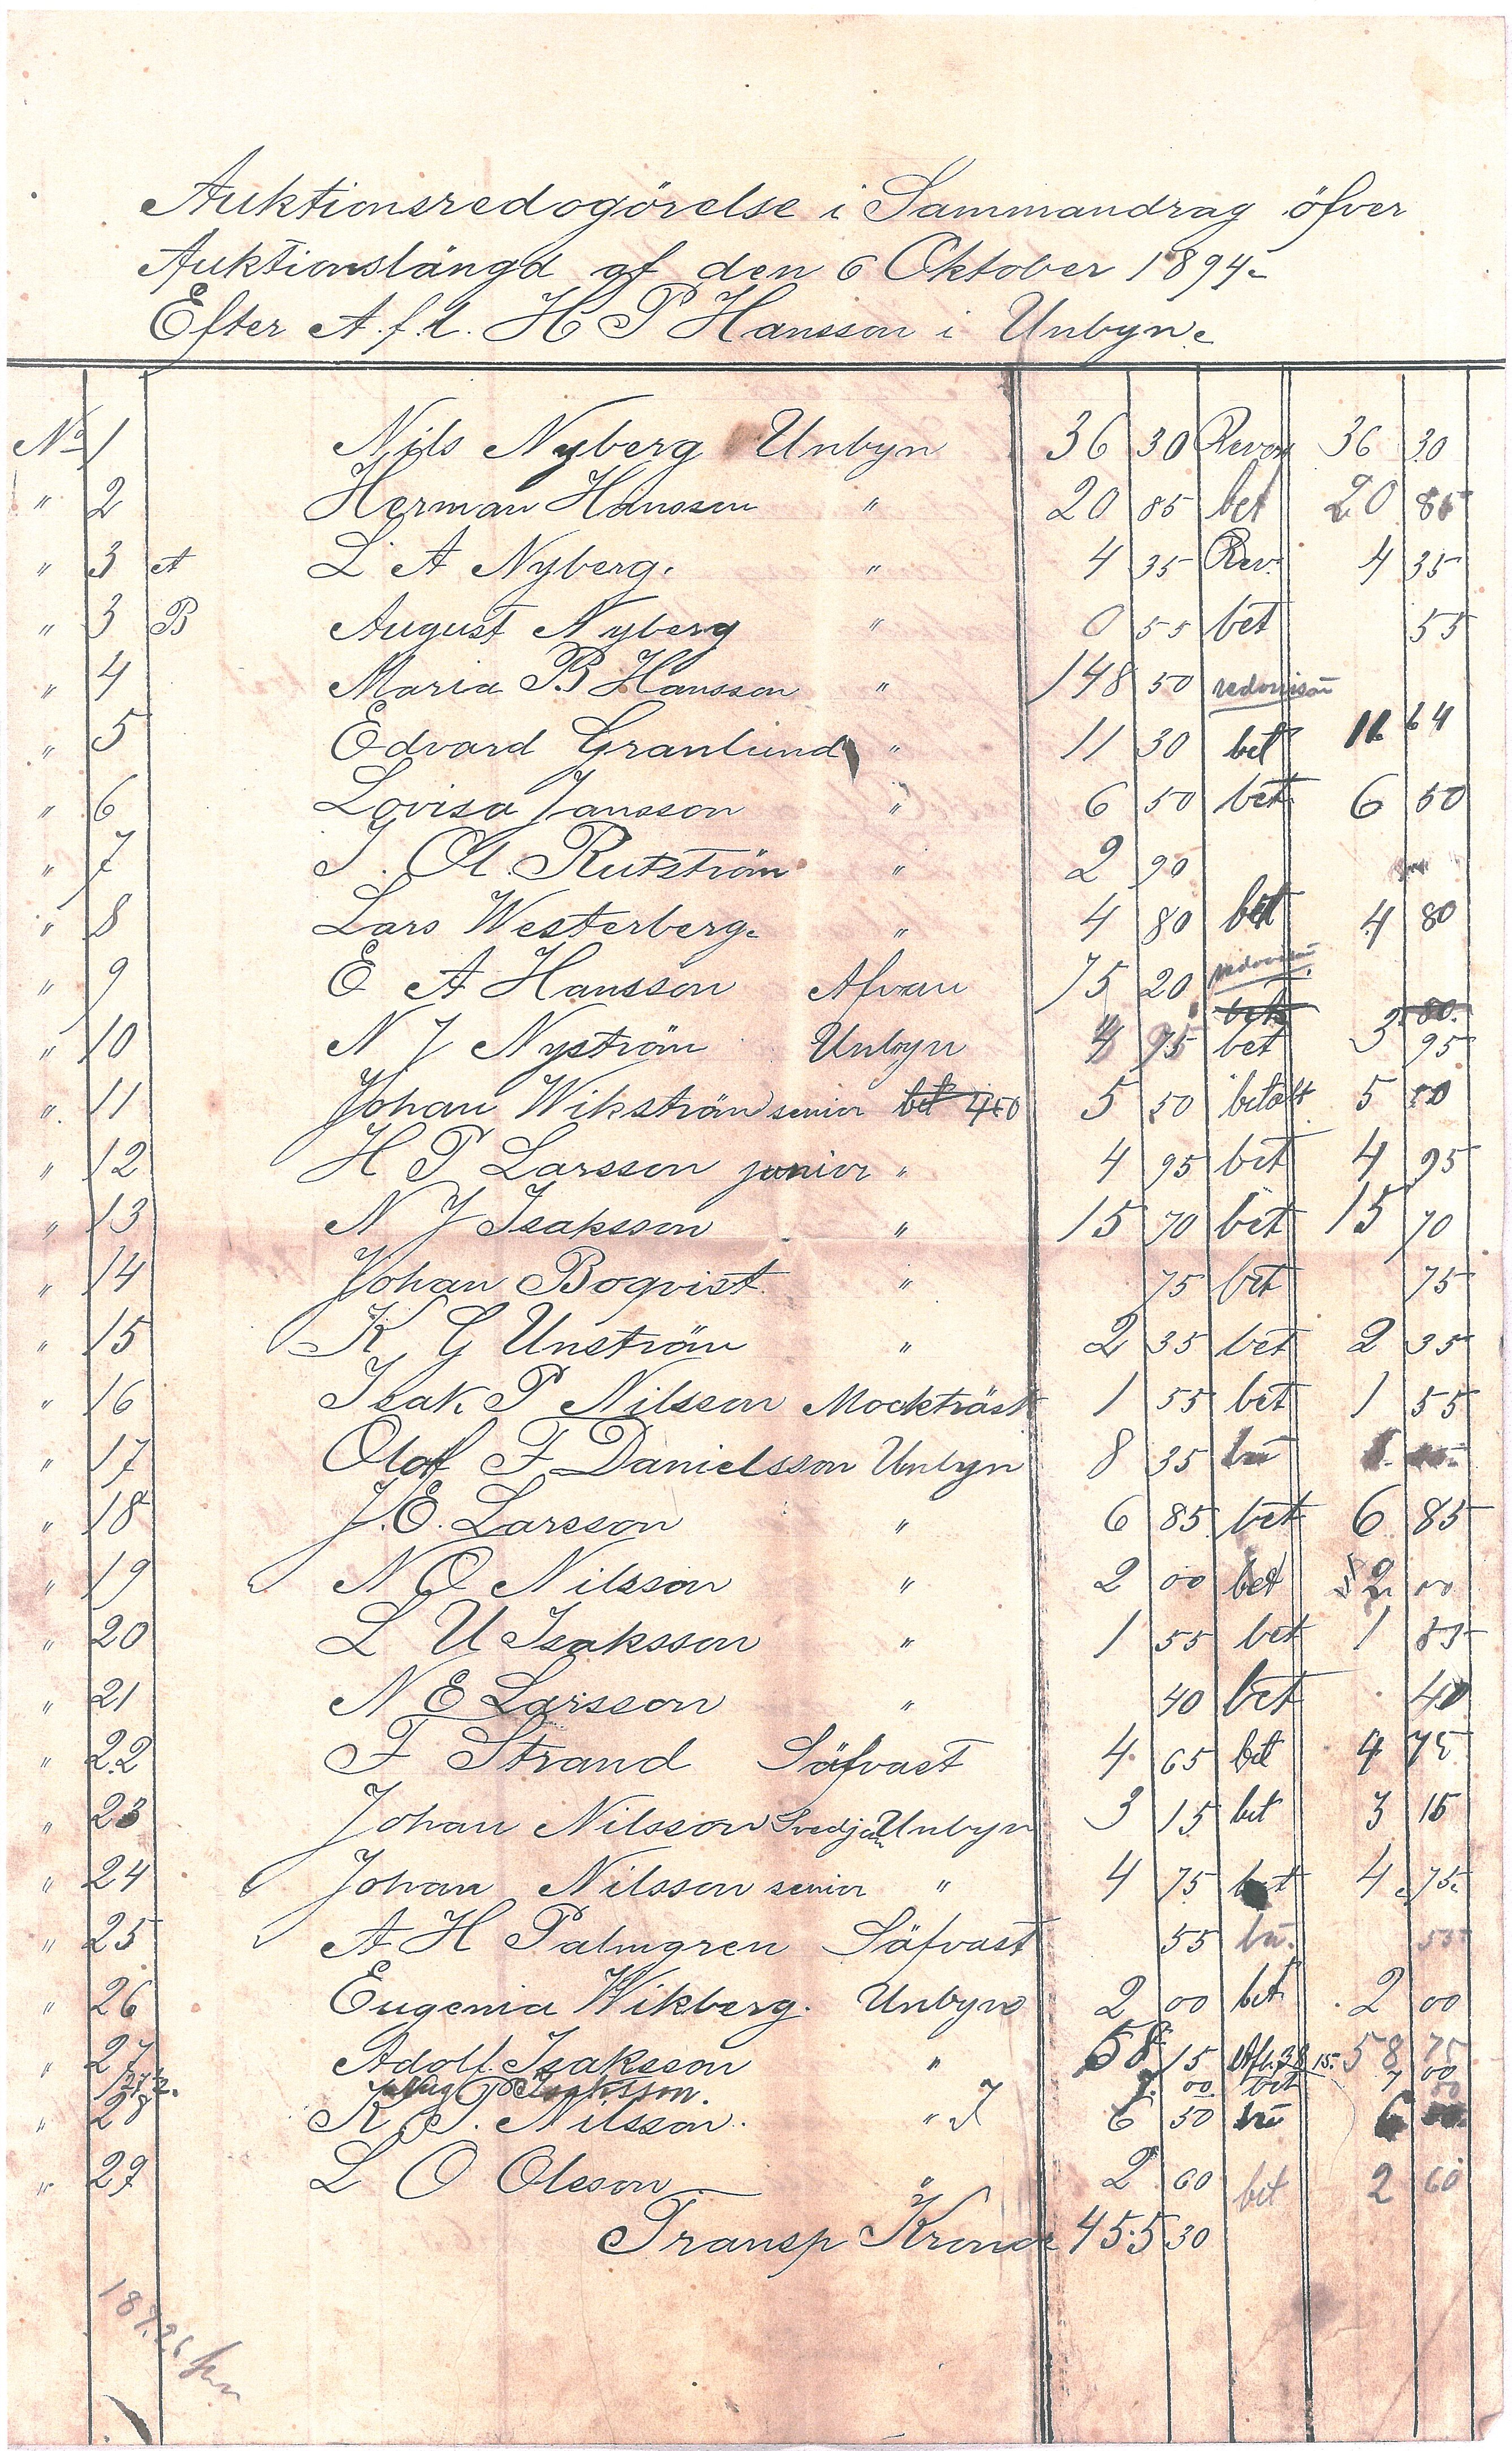 Auktionsredogörelse i Sammandrag öfver
Auktionslängd af den 6 Oktober 1894
Efter A.f.l. H P Hansson i Unbyn
No 1 Nils Nyberg Unbyn 36 30 36 30
" 2 Herman Hansson " 20 85 bet 20 85
" 3 A L A Nyberg. " 4 35 Rev. 4 35
" 3 B August Nyberg " 0 55 bet 55
" 4 Maria B Hansson " 148 50
" 5 Edvard Granlund " 11 30 bet 11 64
" 6 Lovisa Jansson " 6 50 bet 6 50
" 7 Rutström " 2 90
" 8 Lars Westerberg " 4 80 bet 4 80
" 9 E A Hansson Afvan 75 20 bet 80
" 10 N J Nyström Unbyn 4 95 bet 3 95
" 11 Johan Wikström senior bet 450 5 50 betalt 5 50
" 12 H P Larsson junior " 4 95 bet 4 95
" 13 N J Isaksson " 15 70 bet 15 70
" 14 Johan Boqvist " 75 bet 75
" 15 K G Unström " 2 35 bet 2 35
" 16 Isak P Nilsson Mockträsk 1 55 bet 1 55
" 17 Olof F Danielsson Unbyn 8 35
" 18 J. E. Larsson " 6 85 bet 6 85
" 19 N O Nilsson " 2 00 bet 2 00
" 20 L U Isaksson " 1 55 bet 1
" 21 N E Larsson " 40 bet 40
" 22 F Strand Säfvast 4 65 bet 4 75
" 23 Johan Nilsson Unbyn 3 15 bet 3 15
" 24 Johan Nilsson senior " 4 75 bet 4 75
" 25 A H Palmgren Säfvast 55 55
" 26 Eugenia Wikberg. Unbyn 2 00 bet 2 00
" 27 Adolf Isaksson " 58 15 58
27½. Isaksson. 7 00 bet 7 00
" 28 K. P. Nilsson. " 6 50 6
" 29 L O Olsson " 2 60 bet 2 60
Transp Kronor 455 30
187.26 kr